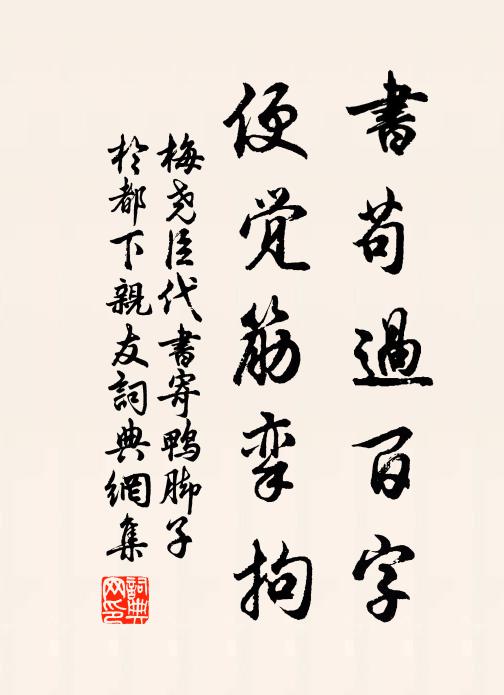 書苟過百字
便觉筋挛拘
梅尧臣代書寄鸭脚子
於都下親友詞典網集
詞典网印